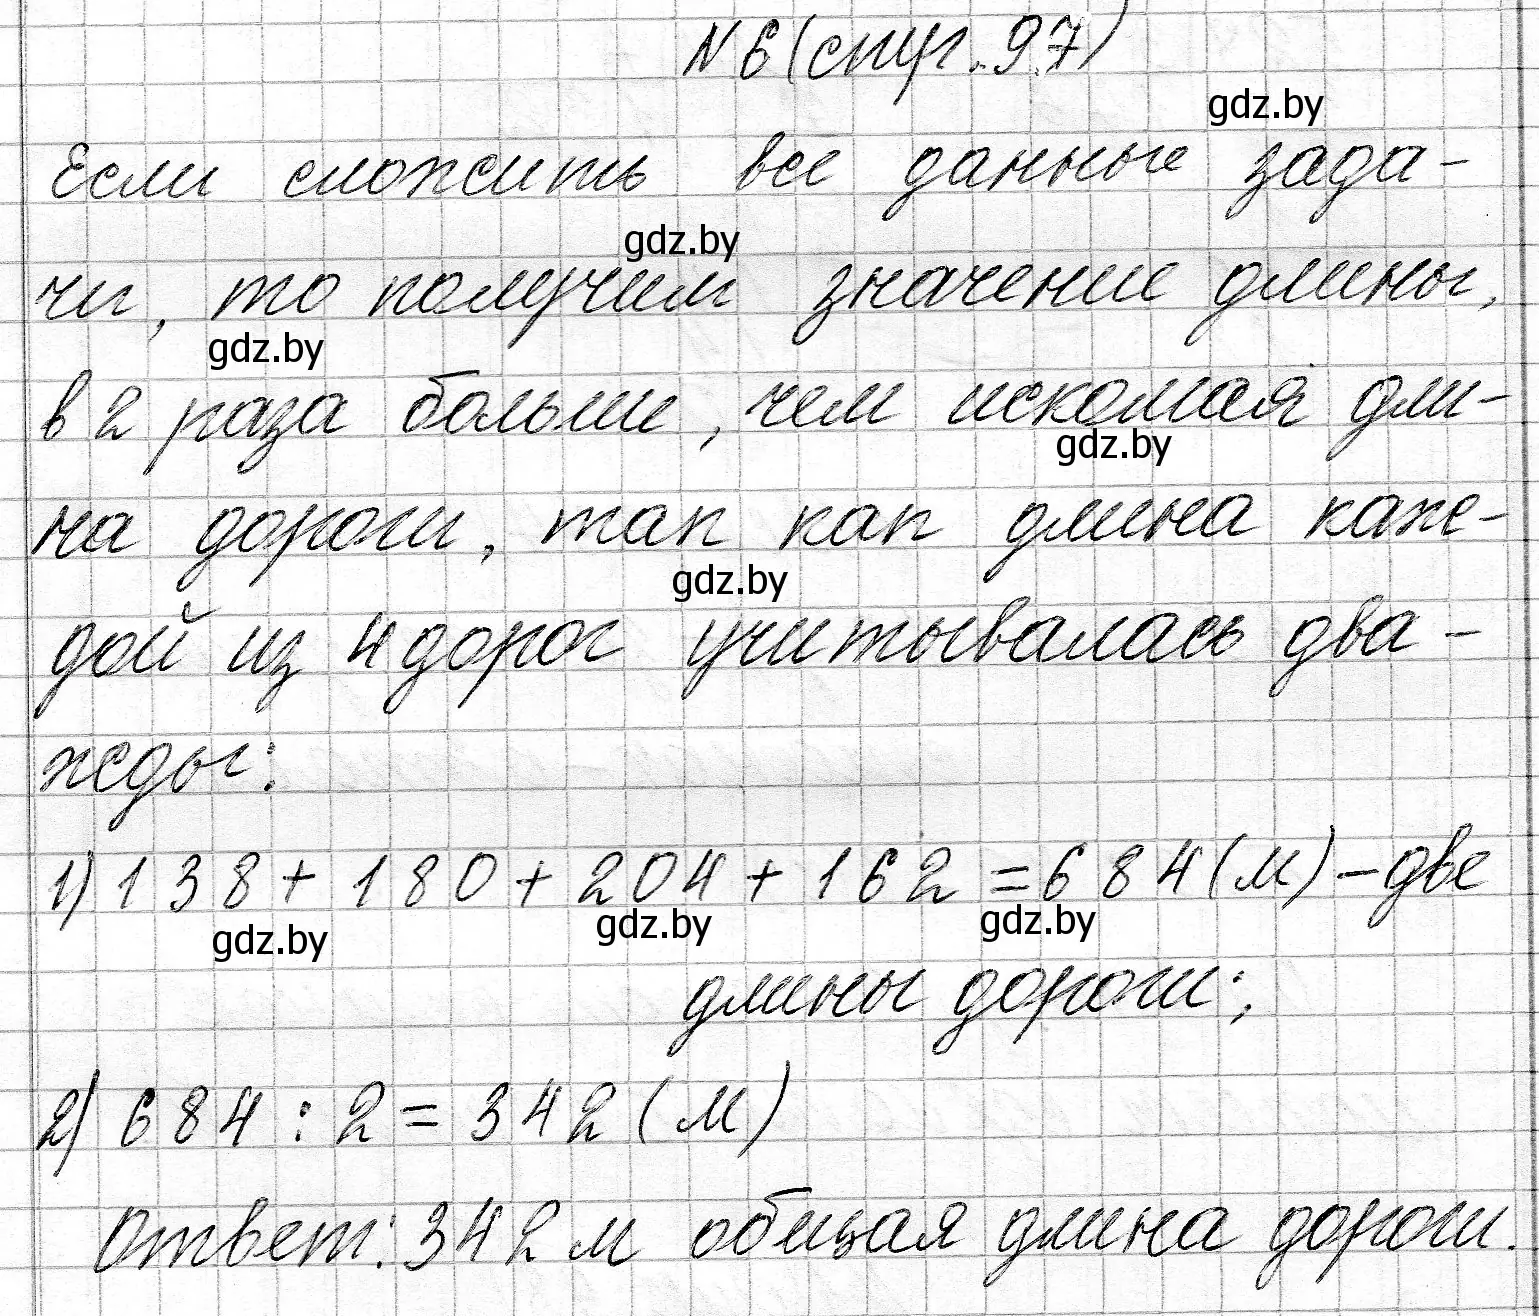 №6 (стр. 97)
gdz.by
Если сложить все данные зада-
gdz.by
чи, то получим значение длины,
gdz.by
в 2 раза больше, чем искомая дли-
gdz.by
на дороги, так как длина каж-
gdz.by
дой из 4 дорог учитывалась два-
жды:
1) 138 + 180 + 204 + 162 = 684 (м) – две
gdz.by gdz.by gdz.by
длины дороги;
2) 684 : 2 = 342 (м)
Ответ: 342 м общая длина дороги.